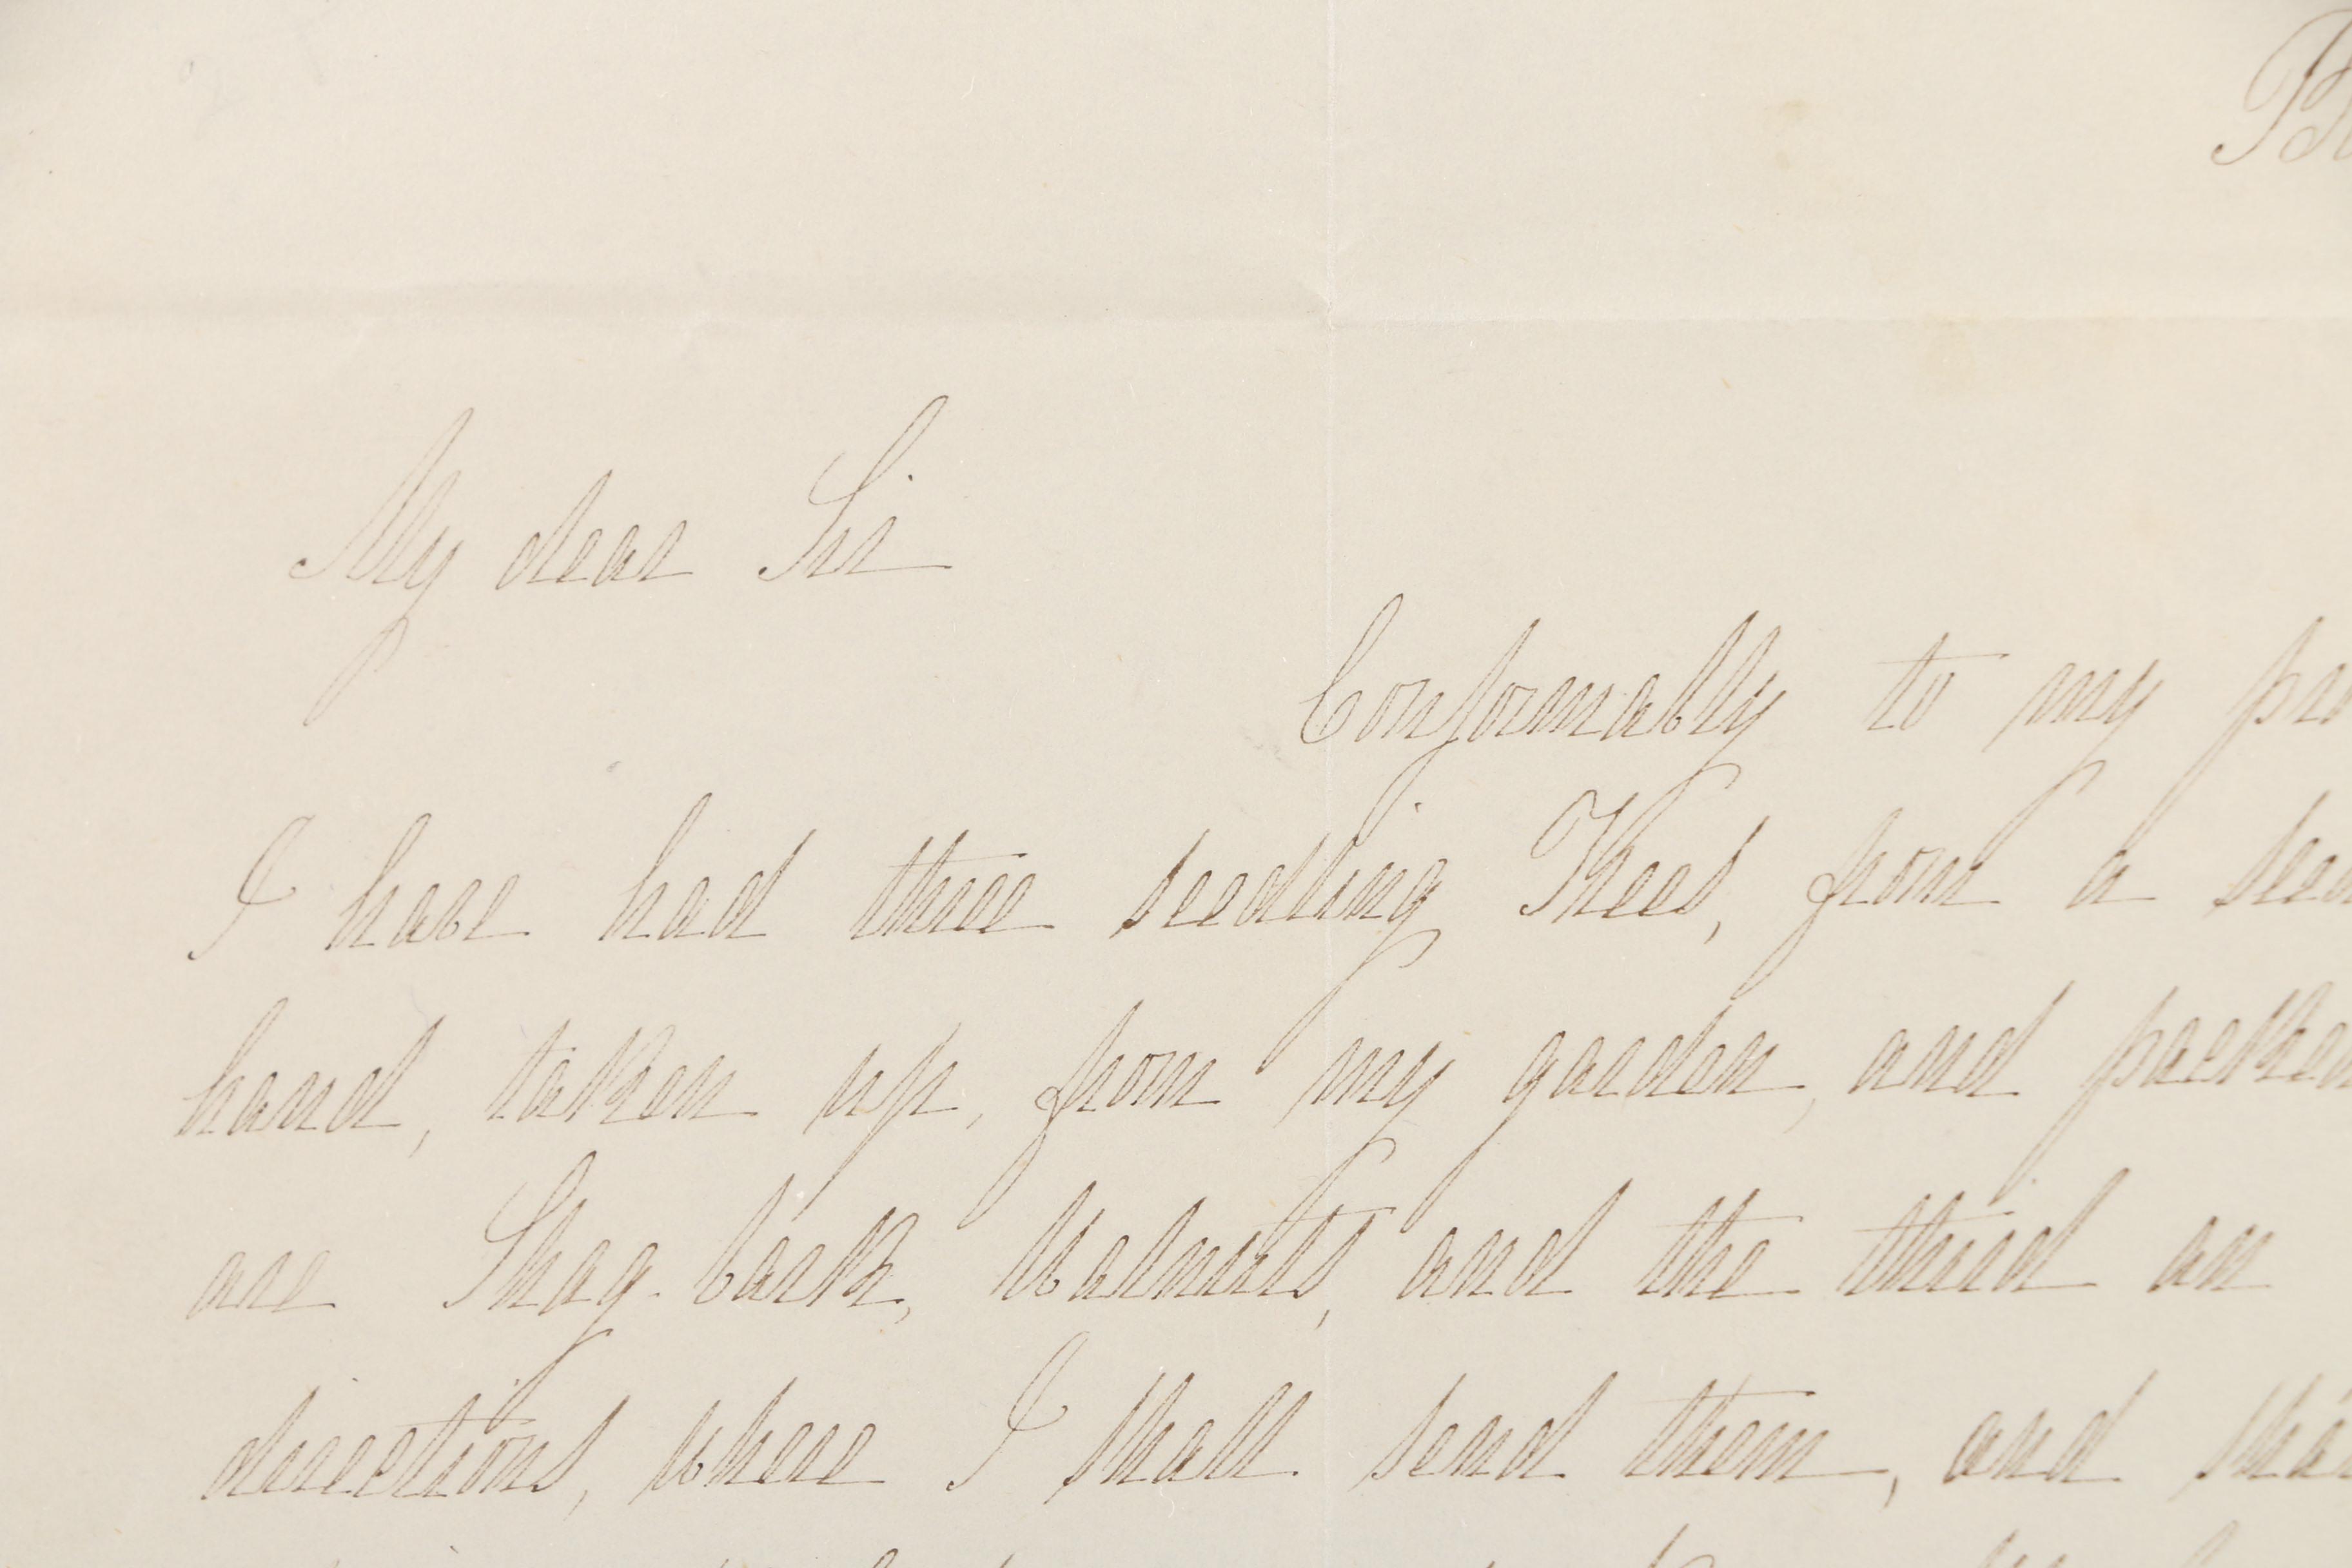 My dear Sir
Conformably to my
I have had three seedling Trees, from a
hand, taken up, from my garden, and
are Shag-bark, Walnuts, and the third an
directions, where I shall send them, and